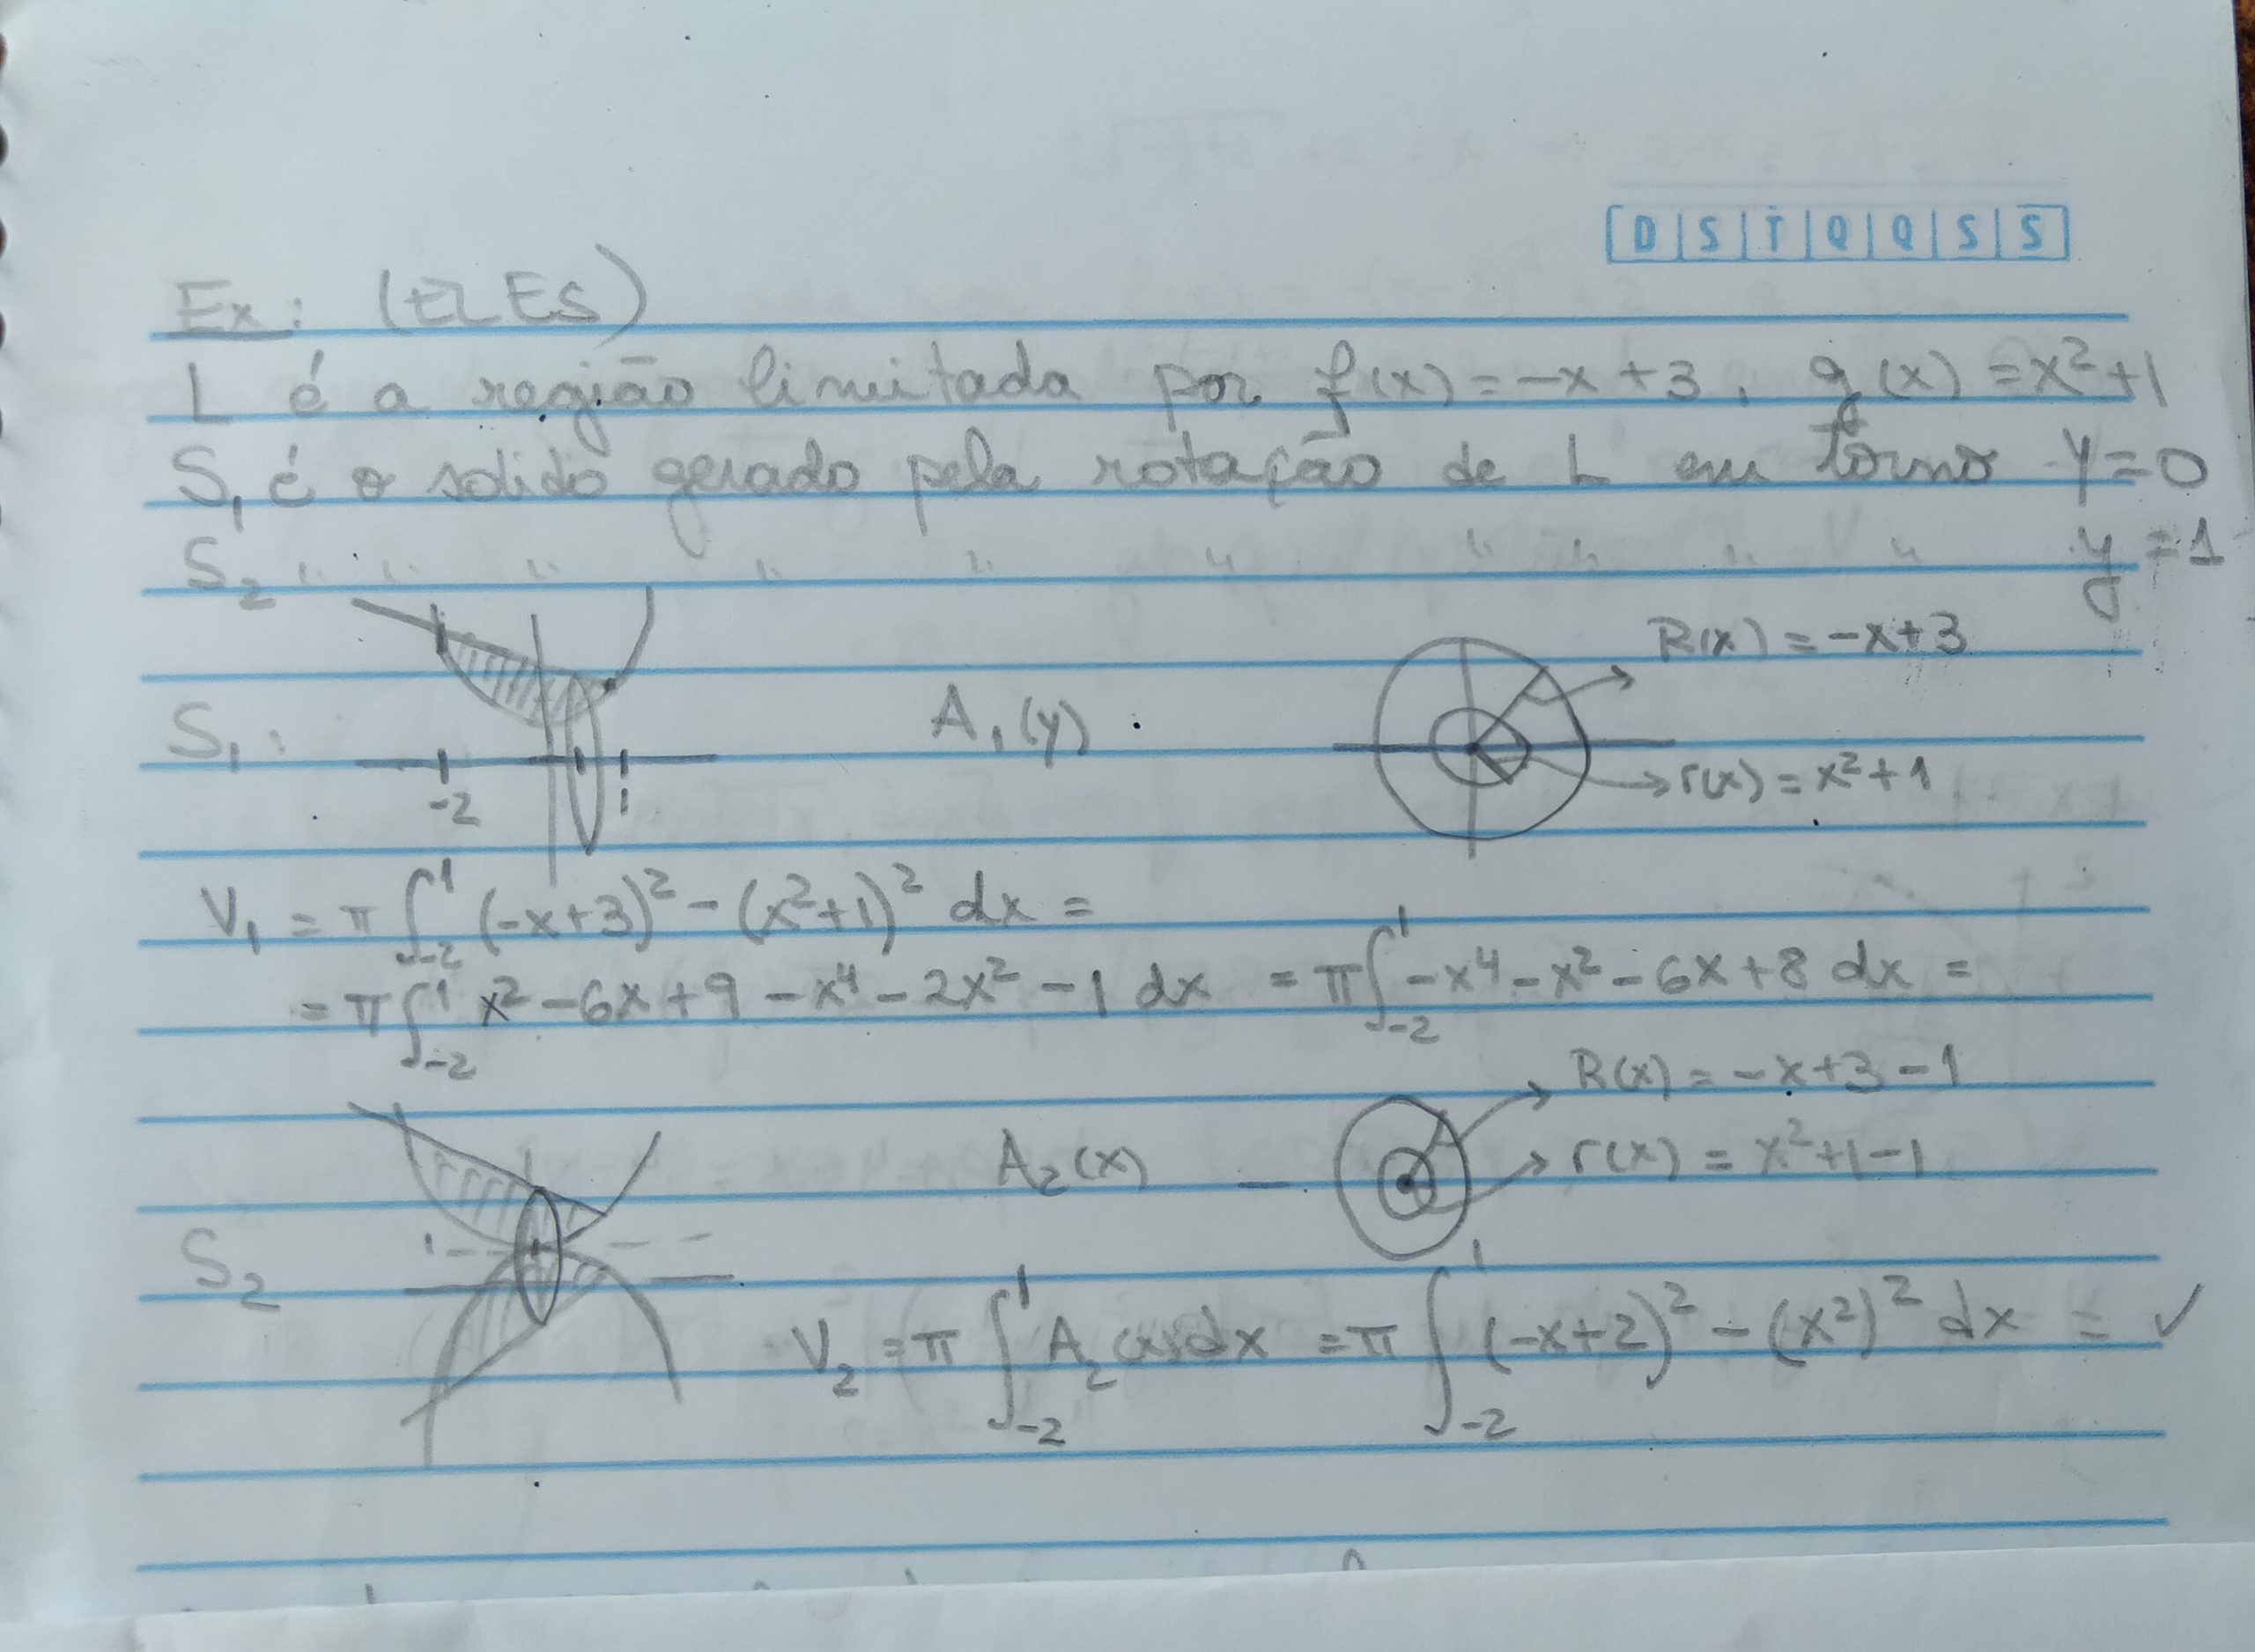 D S T Q Q S S
Ex: (ELES)
L é a região limitada por f(x) = -x + 3, g(x) = x² + 1
S₁ é o solido gerado pela rotação de L em torno y = 0
S₂ " " " " " " " " " " y = 1
R(x) = -x + 3
S₁: A₁(y)
r(x) = x² + 1
-2 1
V₁ = π ∫₋₂¹ (-x+3)² - (x²+1)² dx =
= π ∫₋₂¹ x² - 6x + 9 - x⁴ - 2x² - 1 dx = π ∫₋₂¹ -x⁴ - x² - 6x + 8 dx =
R(x) = -x + 3 - 1
A₂(x) r(x) = x² + 1 - 1
1
S₂
V₂ = π ∫₋₂¹ A₂(x) dx = π ∫₋₂¹ (-x+2)² - (x²)² dx = ✓